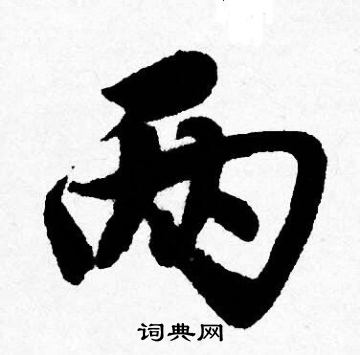 两
词典网